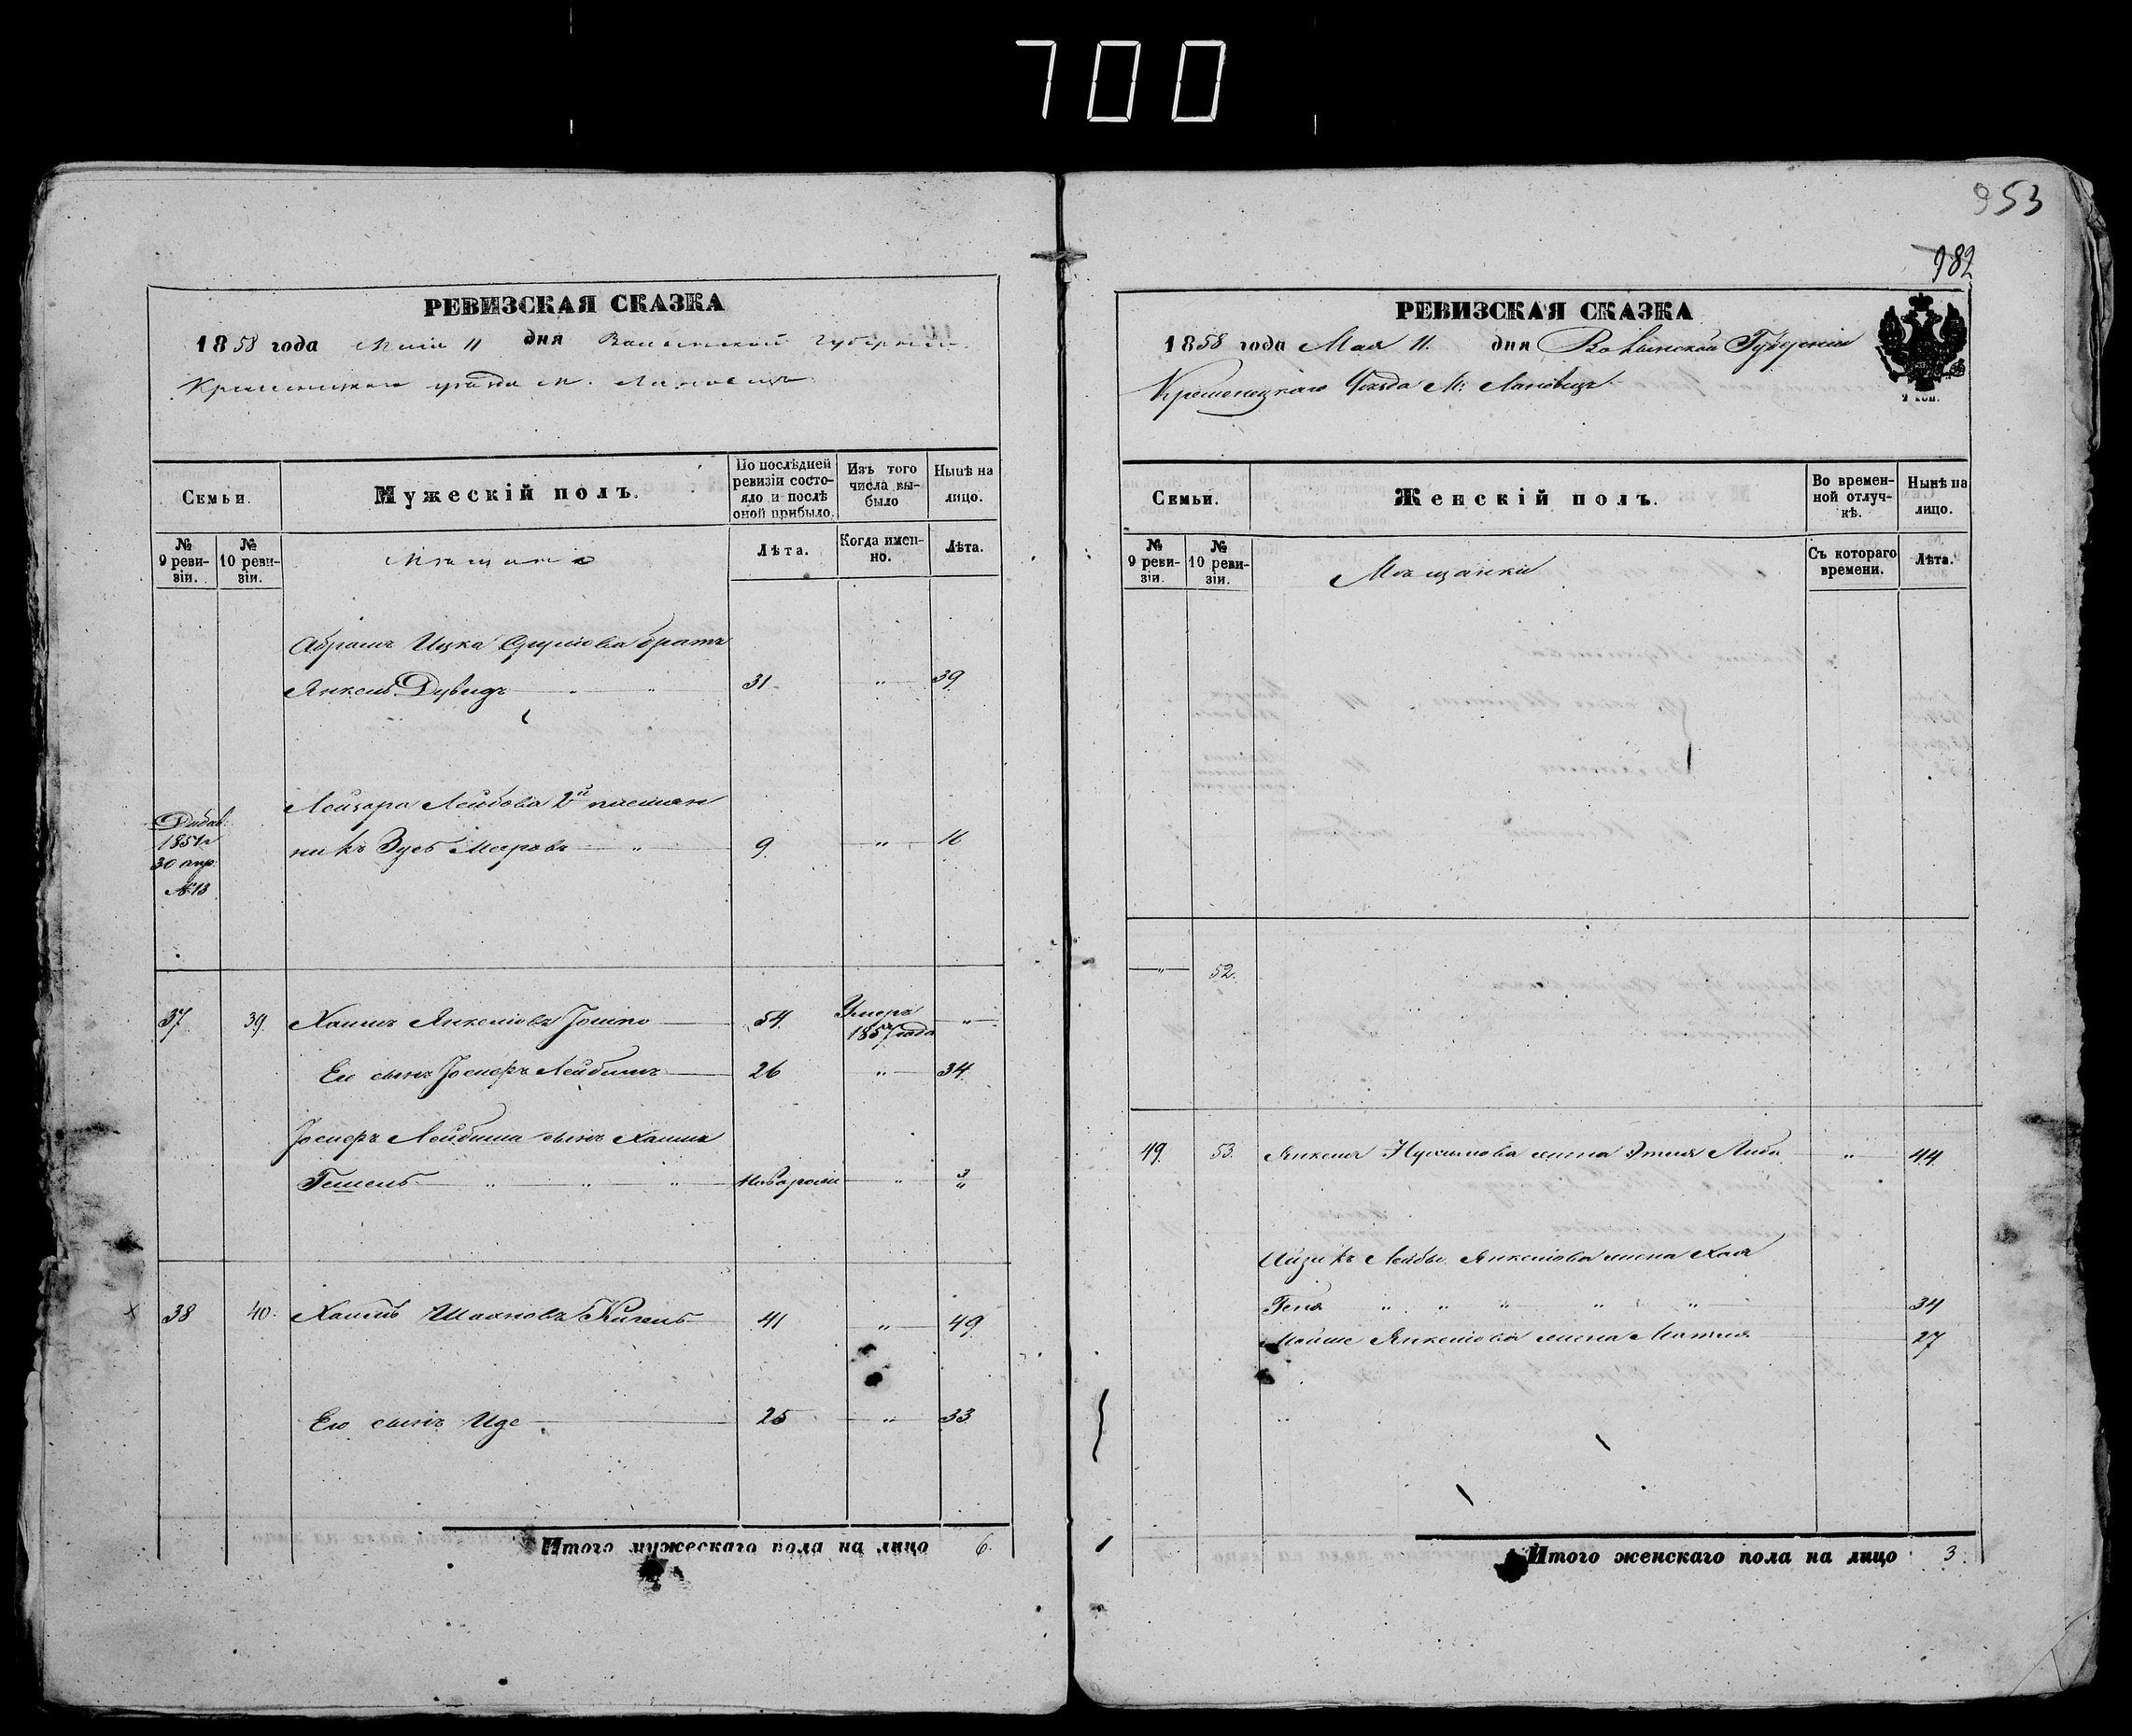 700
953
982
РЕВИЗСКАЯ СКАЗКА
1858 года Мая 11 дня Волынской Губернии
Кременецкаго уезда м. Лановецъ
Семьи.
Мужескій полъ.
По послѣдней ревизіи состояло и послѣ оной прибыло.
Изъ того числа выбыло
Нынѣ на лицо.
№ 9 ревизіи.
№ 10 ревизіи.
Мѣщане
Лѣта.
Когда именно.
Лѣта.
Абрамъ Ицка братъ
Янкель Дувидъ 31 " 39
Лейзора Лейбова 2й племян
Добав. 1851 30 апр №13
никъ Зусь Мееровъ 9. " 16
37 39. Хаимъ Янкелiовъ 54. Умеръ 1857 года "
Его сынъ Іосифъ Лейбишъ 26 " 34.
Іосифъ Лейбиша сынъ Хаимъ
Гешель " " " новорожд " 3/"
38 40. Хаимъ Шахновъ 41 " 49
Его сынъ Иде 25 " 33
Итого мужескаго пола на лицо 6.
РЕВИЗСКАЯ СКАЗКА
1858 года Мая 11. дня Волынской Губерніи
Кременецкаго Уѣзда М: Лановецъ
2 коп.
Семьи.
Женскій полъ.
Во временной отлучкѣ.
Нынѣ на лицо.
№ 9 ревизіи.
№ 10 ревизіи.
Мѣщанки
Съ котораго времени.
Лѣта.
" 52.
49. 53. Янкеля Нухимова жена Этля Либа " 44.
Айзикъ Лейбы Янкелiова жена Хая
Геня " " " " " 34
Мойше Янкелiова жена 27
Итого женскаго пола на лицо 3.